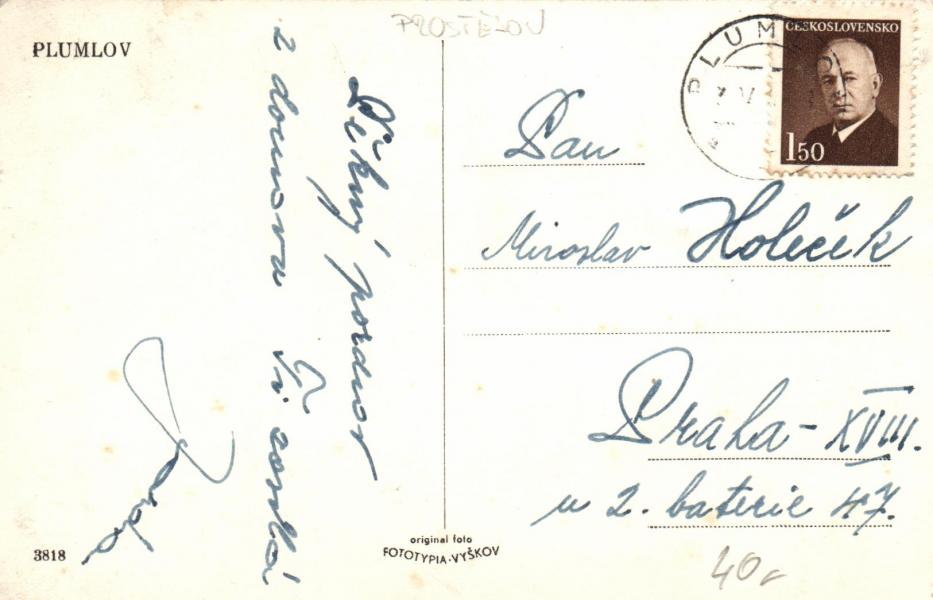 PLUMLOV
PROSTĚJOV
Pěkný pozdrav
z domova Ti zasílá
PLUMLOV
ČESKOSLOVENSKO
150
Pan
Miroslav Holeček
Praha - XVIII.
u 2. baterie 47.
3818
original foto
FOTOTYPIA-VYŠKOV
40,-